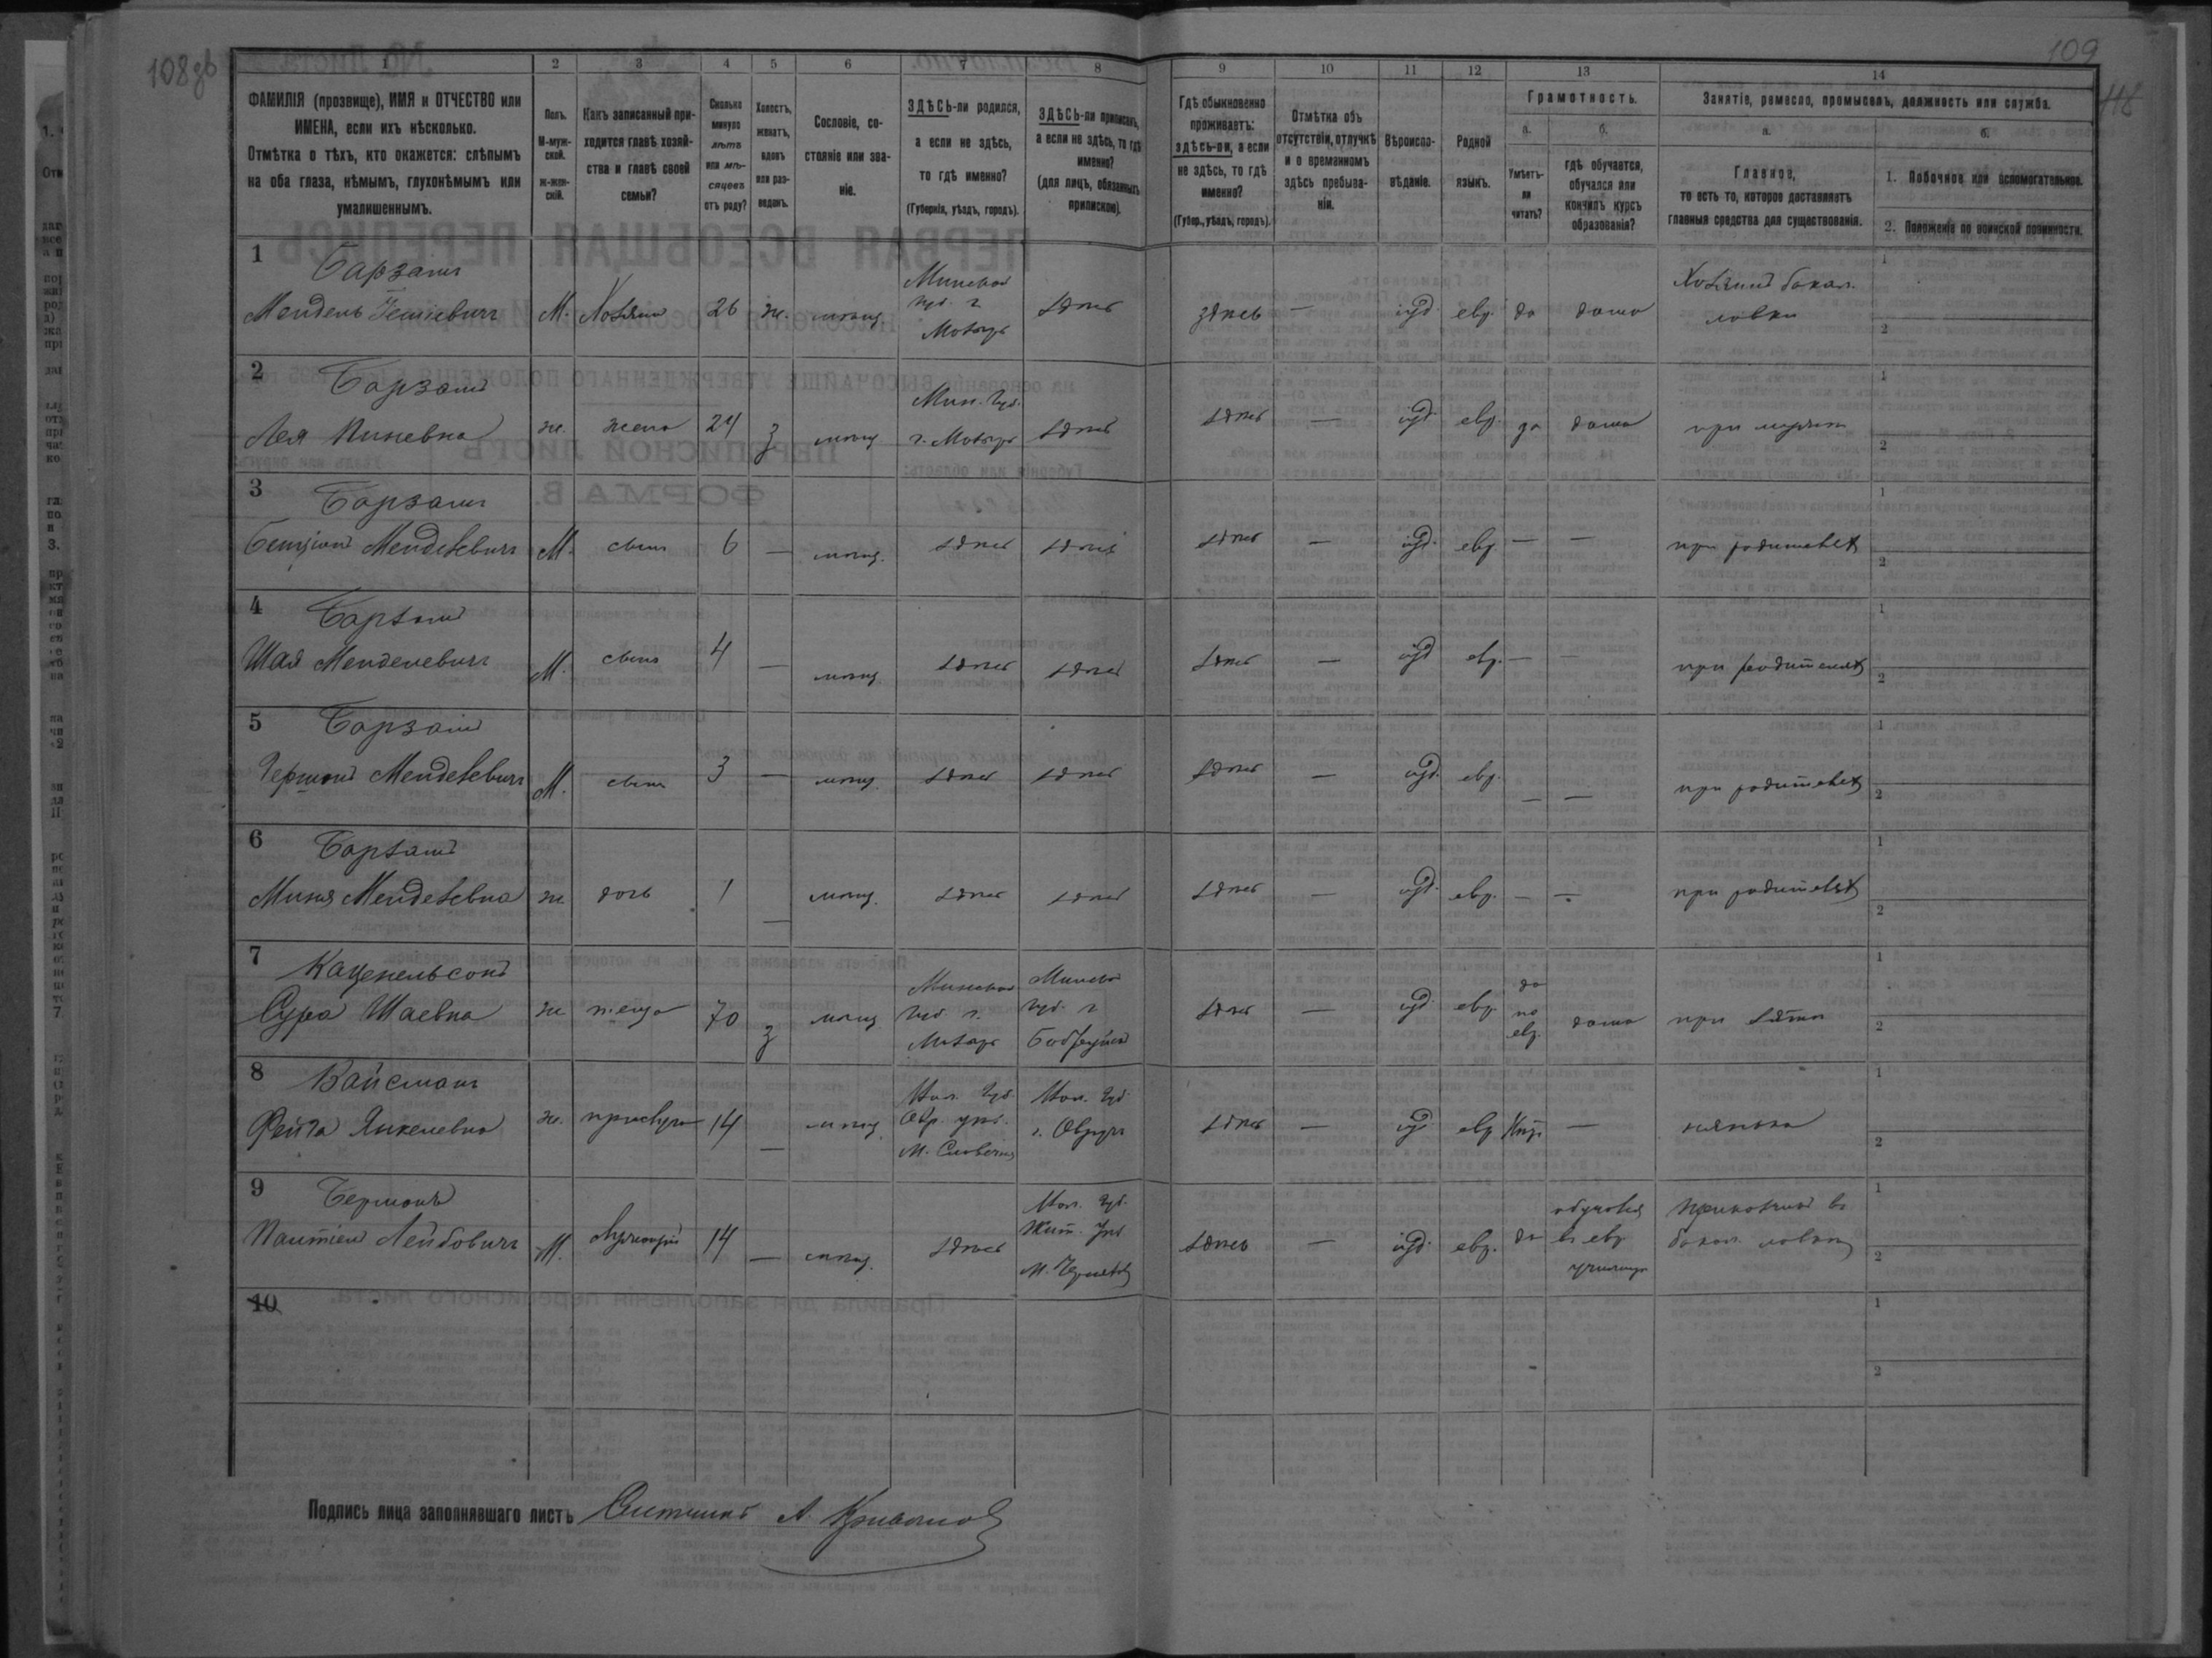 108об
109
118
1 2 3 4 5 6 7 8 9 10 11 12 13 14
ФАМИЛІЯ (прозвище), ИМЯ и ОТЧЕСТВО или
ИМЕНА, если ихъ нѣсколько.
Отмѣтка о тѣхъ, кто окажется: слѣпымъ
на оба глаза, нѣмымъ, глухонѣмымъ или
умалишеннымъ.
Полъ.
М-муж-
ской.
ж-жен-
скій.
Какъ записанный при-
ходится главѣ хозяй-
ства и главѣ своей
семьи?
Сколько
минуло
лѣтъ
или мѣ-
сяцевъ
отъ роду?
Холостъ,
женатъ,
вдовъ
или раз-
веденъ.
Сословіе, со-
стояніе или зва-
ніе.
ЗДѢСЬ-ли родился,
а если не здѣсь,
то гдѣ именно?
(Губернія, уѣздъ, городъ).
ЗДѢСЬ-ли приписанъ,
а если не здѣсь, то гдѣ
именно?
(для лицъ, обязанныхъ
припискою).
Гдѣ обыкновенно
проживаетъ:
здѣсь-ли, а если
не здѣсь, то гдѣ
именно?
(Губер., уѣздъ, городъ).
Отмѣтка объ
отсутствіи, отлучкѣ
и о временномъ
здѣсь пребыва-
ніи.
Вѣроиспо-
вѣданіе.
Родной
языкъ.
Грамотность.
а.
Умѣетъ-
ли
читать?
б.
гдѣ обучается,
обучался или
кончилъ курсъ
образованія?
Занятіе, ремесло, промыселъ, должность или служба.
а.
Главное,
то есть то, которое доставляетъ
главныя средства для существованія.
б.
1. Побочное или вспомогательное.
2. Положеніе по воинской повинности.
1 Барзамъ
Мендель М. Хозяинъ 26 ж. мѣщ. Минская губ. г. Мозырь здѣсь здѣсь — іуд. евр. да дома Хозяинъ бакал. лавки 1 2
2 Барзамъ
Лея Пиневна ж. жена 24 з мѣщ. Мин. губ. г. Мозырь здѣсь здѣсь — іуд. евр. да дома при мужѣ 1 2
3 Барзамъ
Бенціонъ Менделевичъ М. сынъ 6 — мѣщ. здѣсь здѣсь здѣсь — іуд. евр. — — при родителяхъ 1 2
4 Барзамъ
Шая Менделевичъ М. сынъ 4 — мѣщ. здѣсь здѣсь здѣсь — іуд. евр. — — при родителяхъ 1 2
5 Барзамъ
Гершонъ Менделевичъ М. сынъ 3 — мѣщ. здѣсь здѣсь здѣсь — іуд. евр. — — при родителяхъ 1 2
6 Барзамъ
Миня Менделевна ж. дочь 1 — мѣщ. здѣсь здѣсь здѣсь — іуд. евр. — — при родителяхъ 1 2
7 Каценельсонъ
Сура Шаевна ж теща 70 з мѣщ. Минская губ. г. Мозырь Минской губ. г. Бобруйскъ здѣсь — іуд. евр. да по евр. дома при зятѣ 1 2
8 Вайсманъ
Фейга Янкелевна ж. прислуга 14 — мѣщ. Вол. губ. Овр. уѣз. м. Словечно Вол. губ. г. Овручъ здѣсь — іуд евр — нянька 1 2
9 Берманъ
Лейбовичъ М. Служащій 14 — мѣщ. здѣсь Вол. губ. Жит. уѣз. м. здѣсь — іуд. евр. да обучался въ евр. училищѣ Прикащикъ въ бакал. лавкѣ 1 2
10 1 2
Подпись лица заполнявшаго листъ Счетчикъ А.